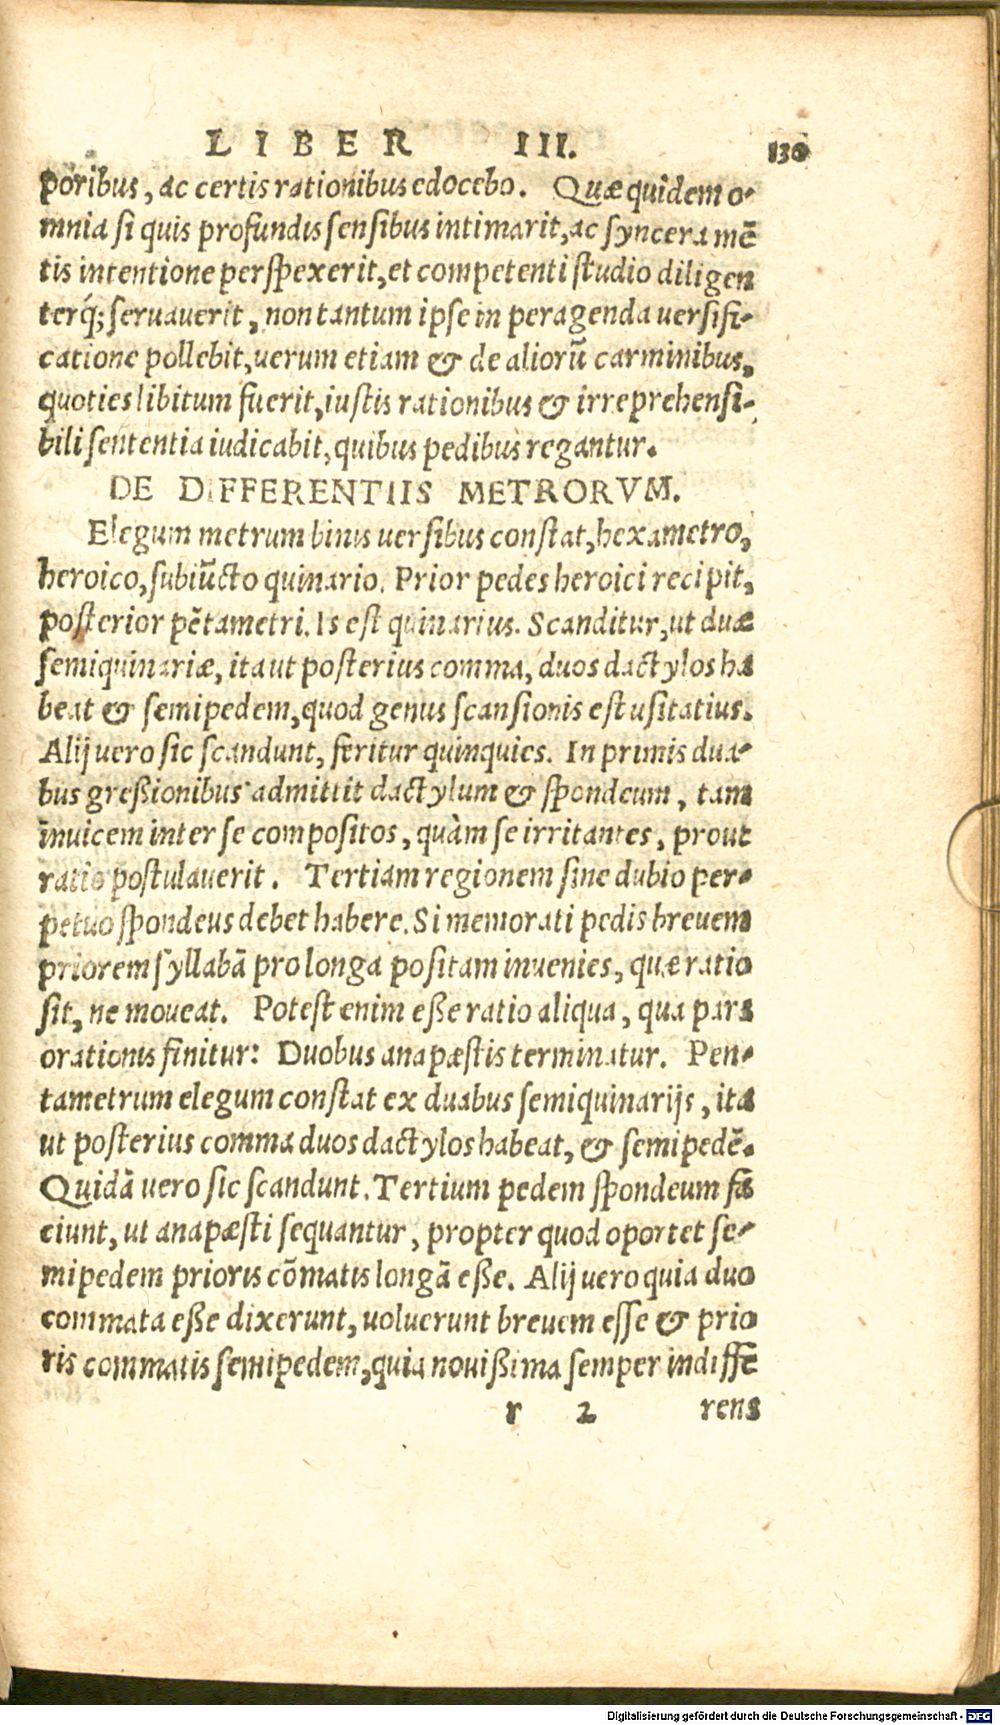 LIBER III. 130
poribus, ac certis rationibus edocebo. Quæ quidem o-
mnia si quis profundis sensibus intimarit, ac syncera mē
tis intentione perspexerit, et competenti studio diligen
terq́; seruauerit, non tantum ipse in peragenda uersifi-
catione pollebit, uerum etiam & de aliorū carminibus,
quoties libitum fuerit, iustis rationibus & irreprehensi-
bili sententia iudicabit, quibus pedibus regantur.
DE DIFFERENTIIS METRORVM.
Elegum metrum binis uersibus constat, hexametro,
heroico, subiūcto quinario. Prior pedes heroici recipit,
posterior pētametri. Is est quinarius. Scanditur, ut duæ
semiquinariæ, ita ut posterius comma, duos dactylos ha
beat & semipedem, quod genus scansionis est usitatius.
Alij uero sic scandunt, feritur quinquies. In primis dua-
bus greßionibus admittit dactylum & spondeum, tam
inuicem inter se compositos, quàm se irritantes, prout
ratio postulauerit. Tertiam regionem sine dubio per-
petuo spondeus debet habere. Si memorati pedis breuem
priorem syllabā pro longa positam inuenies, quæ ratio
sit, ne moueat. Potest enim eße ratio aliqua, qua pars
orationis finitur: Duobus anapæstis terminatur. Pen-
tametrum elegum constat ex duabus semiquinarijs, ita
ut posterius comma duos dactylos habeat, & semipedē.
Quidā uero sic scandunt. Tertium pedem spondeum fa
ciunt, ut anapæsti sequantur, propter quod oportet se-
mipedem prioris cōmatis longā eße. Alij uero quia duo
commata eße dixerunt, uoluerunt breuem esse & prio
ris commatis semipedem, quia nouißima semper indiffe
r 2 rens
Digitalisierung gefördert durch die Deutsche Forschungsgemeinschaft - DFG